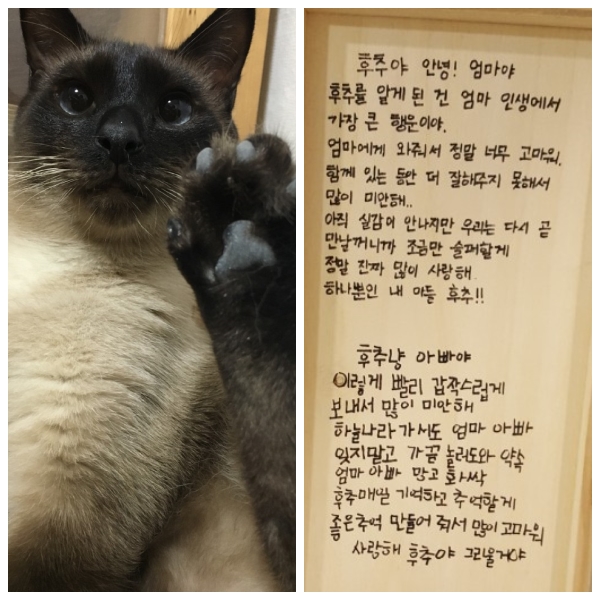 후추야 안녕! 엄마야
후추를 알게 된 건 엄마 인생에서
가장 큰 행운이야.
엄마에게 와줘서 정말 너무 고마워.
함께 있는 동안 더 잘해주지 못해서
많이 미안해..
아직 실감이 안나지만 우리는 다시 곧
만날꺼니까 조금만 슬퍼할게
정말 진짜 많이 사랑해.
하나뿐인 내 아들 후추!!
후추냥 아빠야
이렇게 빨리 갑작스럽게
보내서 많이 미안해
하늘나라가서도 엄마 아빠
잊지말고 가끔 놀러도와 약속
엄마 아빠 망고
후추매일 기억하고 추억할게
좋은추억 만들어 줘서 많이 고마워
사랑해 후추야 그리울거야